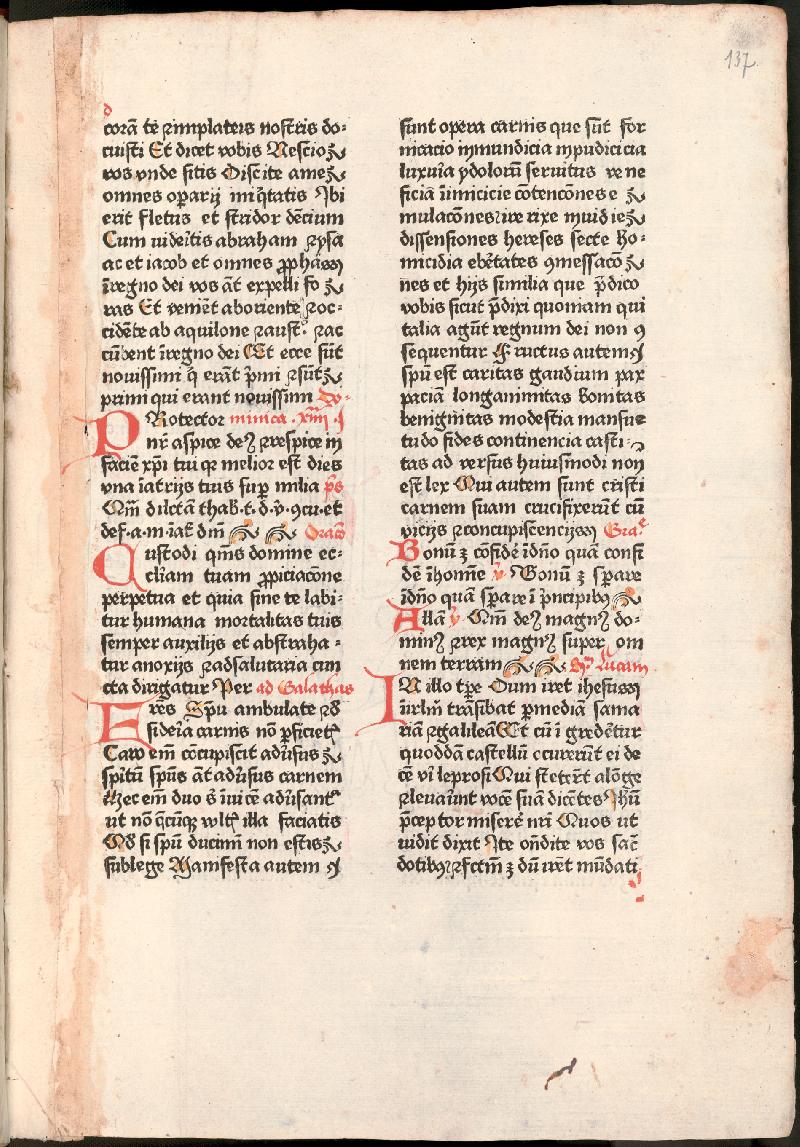 137
d
corā te ⁊ inplateis nostris do⸗
cuisti Et dicet vobis Nescio
vos vnde sitis Discite ame
omnes oparij iniq̄tatis Ibi
erit fletus et stridor dēcium
Cum uiderītis abraham ⁊ysa
ac et iacob et omnes ꝓphās
īregno dei vos āt expelli fo
ras Et veniēt aboriente ⁊oc⸗
cidēte ab aquilone ⁊aust̄ ⁊ac
cūbent īregno dei Et ecce sūt
nouissimi q̄ erānt p̄mi ⁊sūt
primi qui erant nouissimi Do⸗
PRotector minica .xiiii.
nr̄ aspice deꝰ ⁊respice in
faciē xp̄i tui qꝛ melior est dies
vna īatrijs tuis sup̄ milia p̄s
Qm̄ dilctā thab.t.d.v̄.ꝯcu.et
def.a.m.īat̄ dm̄ Oracō
Custodi qm̄s domine ec⸗
cl̄iam tuam ꝓpiciacōne
perpetua et quia sine te labi⸗
tur humana mortalitas tuis
semper auxilijs et abstraha⸗
tur anoxijs ⁊adsalutaria cun
cta dirigatur Per ad Galathas
Fr̄es Sp̄u ambulate ⁊d̄
sideīa carnis nō ꝑficietꝭ
Caro em̄ cōcupiscit adūsus
spītū spūs āt adūsus carnem
Hec em̄ duo s̄ īuicē adūsantꝭ
ut nō q̄cūqꝫ vultꝭ illa faciatis
Qd̄ si spū ducimī non estis
sublege Manifesta autem
sunt opera carnis que sūt for
nicacio inmundicia inpudicicia
luxuia ydolorū seruitus vene
ficiā īimicicie cōtencōnes e
mulacōnes ire rixe inuidie
dissensiones hereses secte Ho⸗
micidia ebētates ꝯmessacō
nes et hijs similia que p̄dico
vobis sicut p̄dixi quoniam qui
talia agūt regnum dei non ꝯ
sequentur Fructus autem
spū est caritas gaudium pax
paciā longanimitas Bonitas
benignitas modestia mansue
tudo fides continencia casti⸗
tas ad versus huiusmodi non
est lex Qui autem sunt cristi
carnem suam crucifixerūt cū
vicijs ⁊concupiscencijs Gra
Bonū ꝫ cōfidē īdn̄o quā confi
dē īhomīe v̄ Bonū ꝫ sꝑare
īdn̄o quā sꝑare ī p̄ncipibꝰ
Allā v̄ Qm̄ deꝰ magnꝰ do⸗
minꝰ ⁊rex magnꝰ super om
nem terram Sꝫ Lucam
IN illo tꝑe Dum iret ihesus
īurlm̄ trāsibat ꝑmediā sama
riā ⁊galileā Et cū ī gredētur
quoddā castellū ocurerūt ei de
cē viī leprosi Qui steterūt alōge
⁊leuaūnt vocē suā dicētes Ihū
p̄ceptor miserē nrī Quos ut
uidit dixit Ite on̄dite vos sac̄
dotibꝰ ⁊fctm̄ ꝫ dū iret mūdati